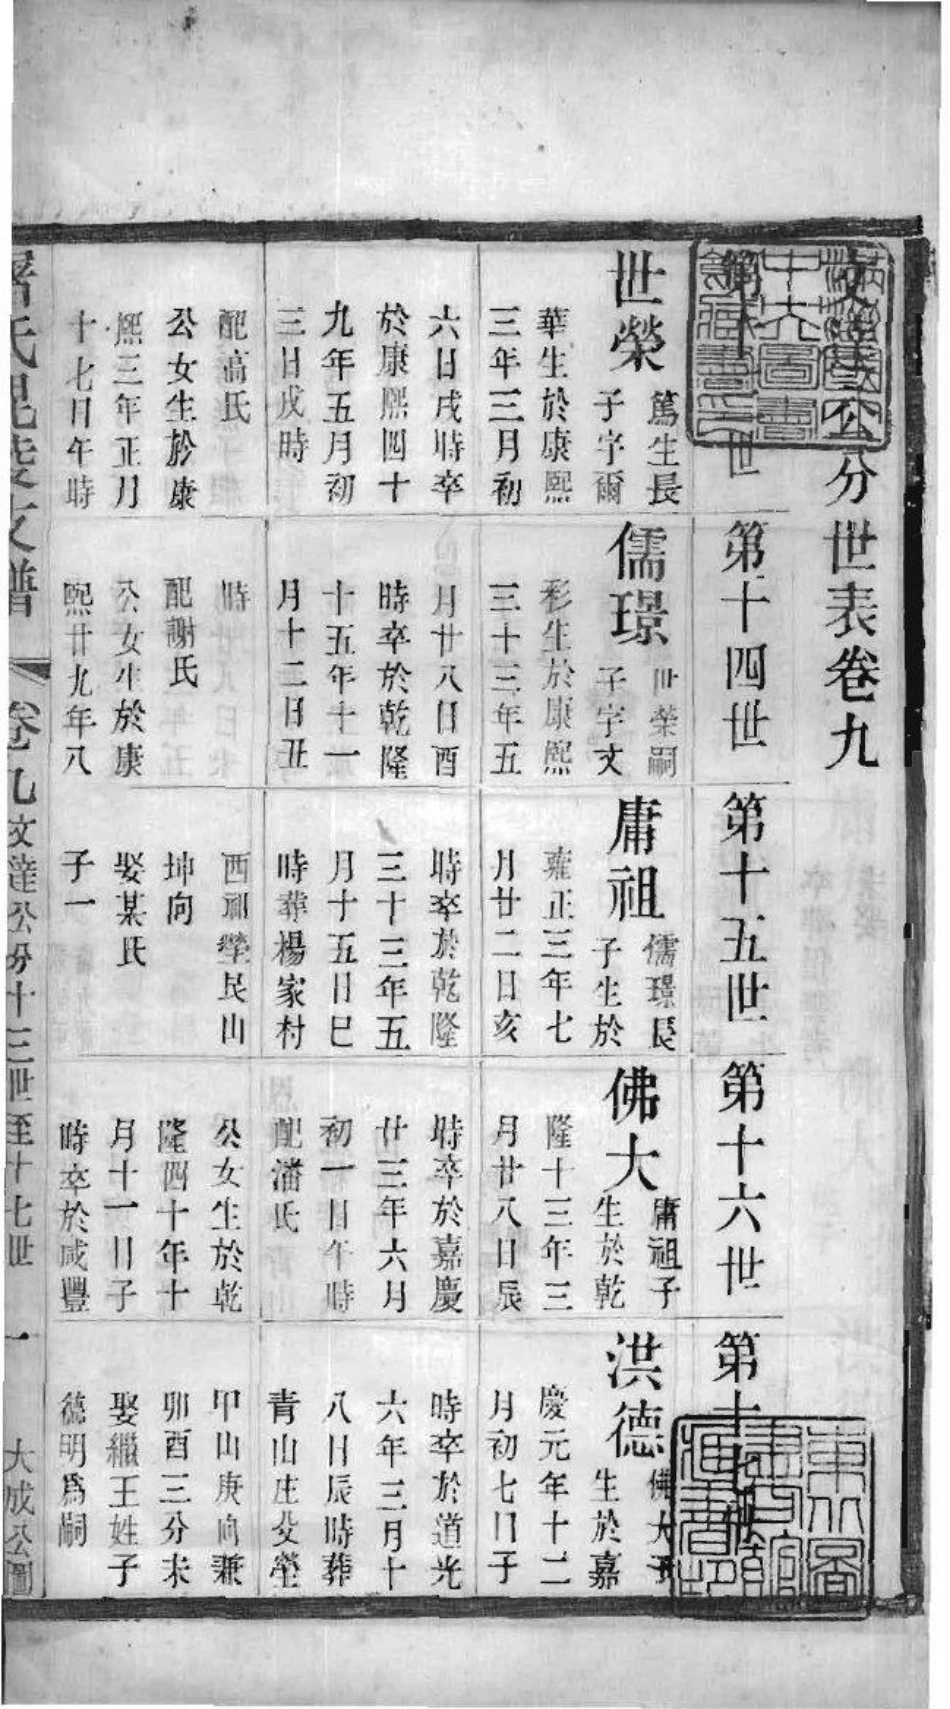 公分世表卷九
世
世榮
篤生長
子字爾
華生於康熙
三年三月初
六日戌時卒
於康熙四十
九年五月初
三日戌時
配高氏
公女生於康
熙三年正月
十七日午時
第十四世
儒璟
世榮嗣
子字文
彩生於康熙
三十三年五
月廿八日酉
時卒於乾隆
十五年十一
月十二日丑
時
配謝氏
公女生於康
熙廿九年八
第十五世
庸祖
儒璟長
子生於
雍正三年七
月廿二日亥
時卒於乾隆
三十三年五
月十五日巳
時葬楊家村
西祖塋艮山
坤向
娶某氏
子一
第十六世
佛大
庸祖子
生於乾
隆十三年三
月廿八日辰
時卒於嘉慶
廿三年六月
初一日午時
配潘氏
公女生於乾
隆四十年十
月十一日子
時卒於咸豐
第十
洪德
佛大子
生於嘉
慶元年十二
月初七日子
時卒於道光
六年三月十
八日辰時葬
青山庄父塋
甲山庚向兼
卯酉三分未
娶繼王姓子
德明爲嗣
氏毘陵支譜
卷九
文達公分十三世至十七世
一
大成公圖